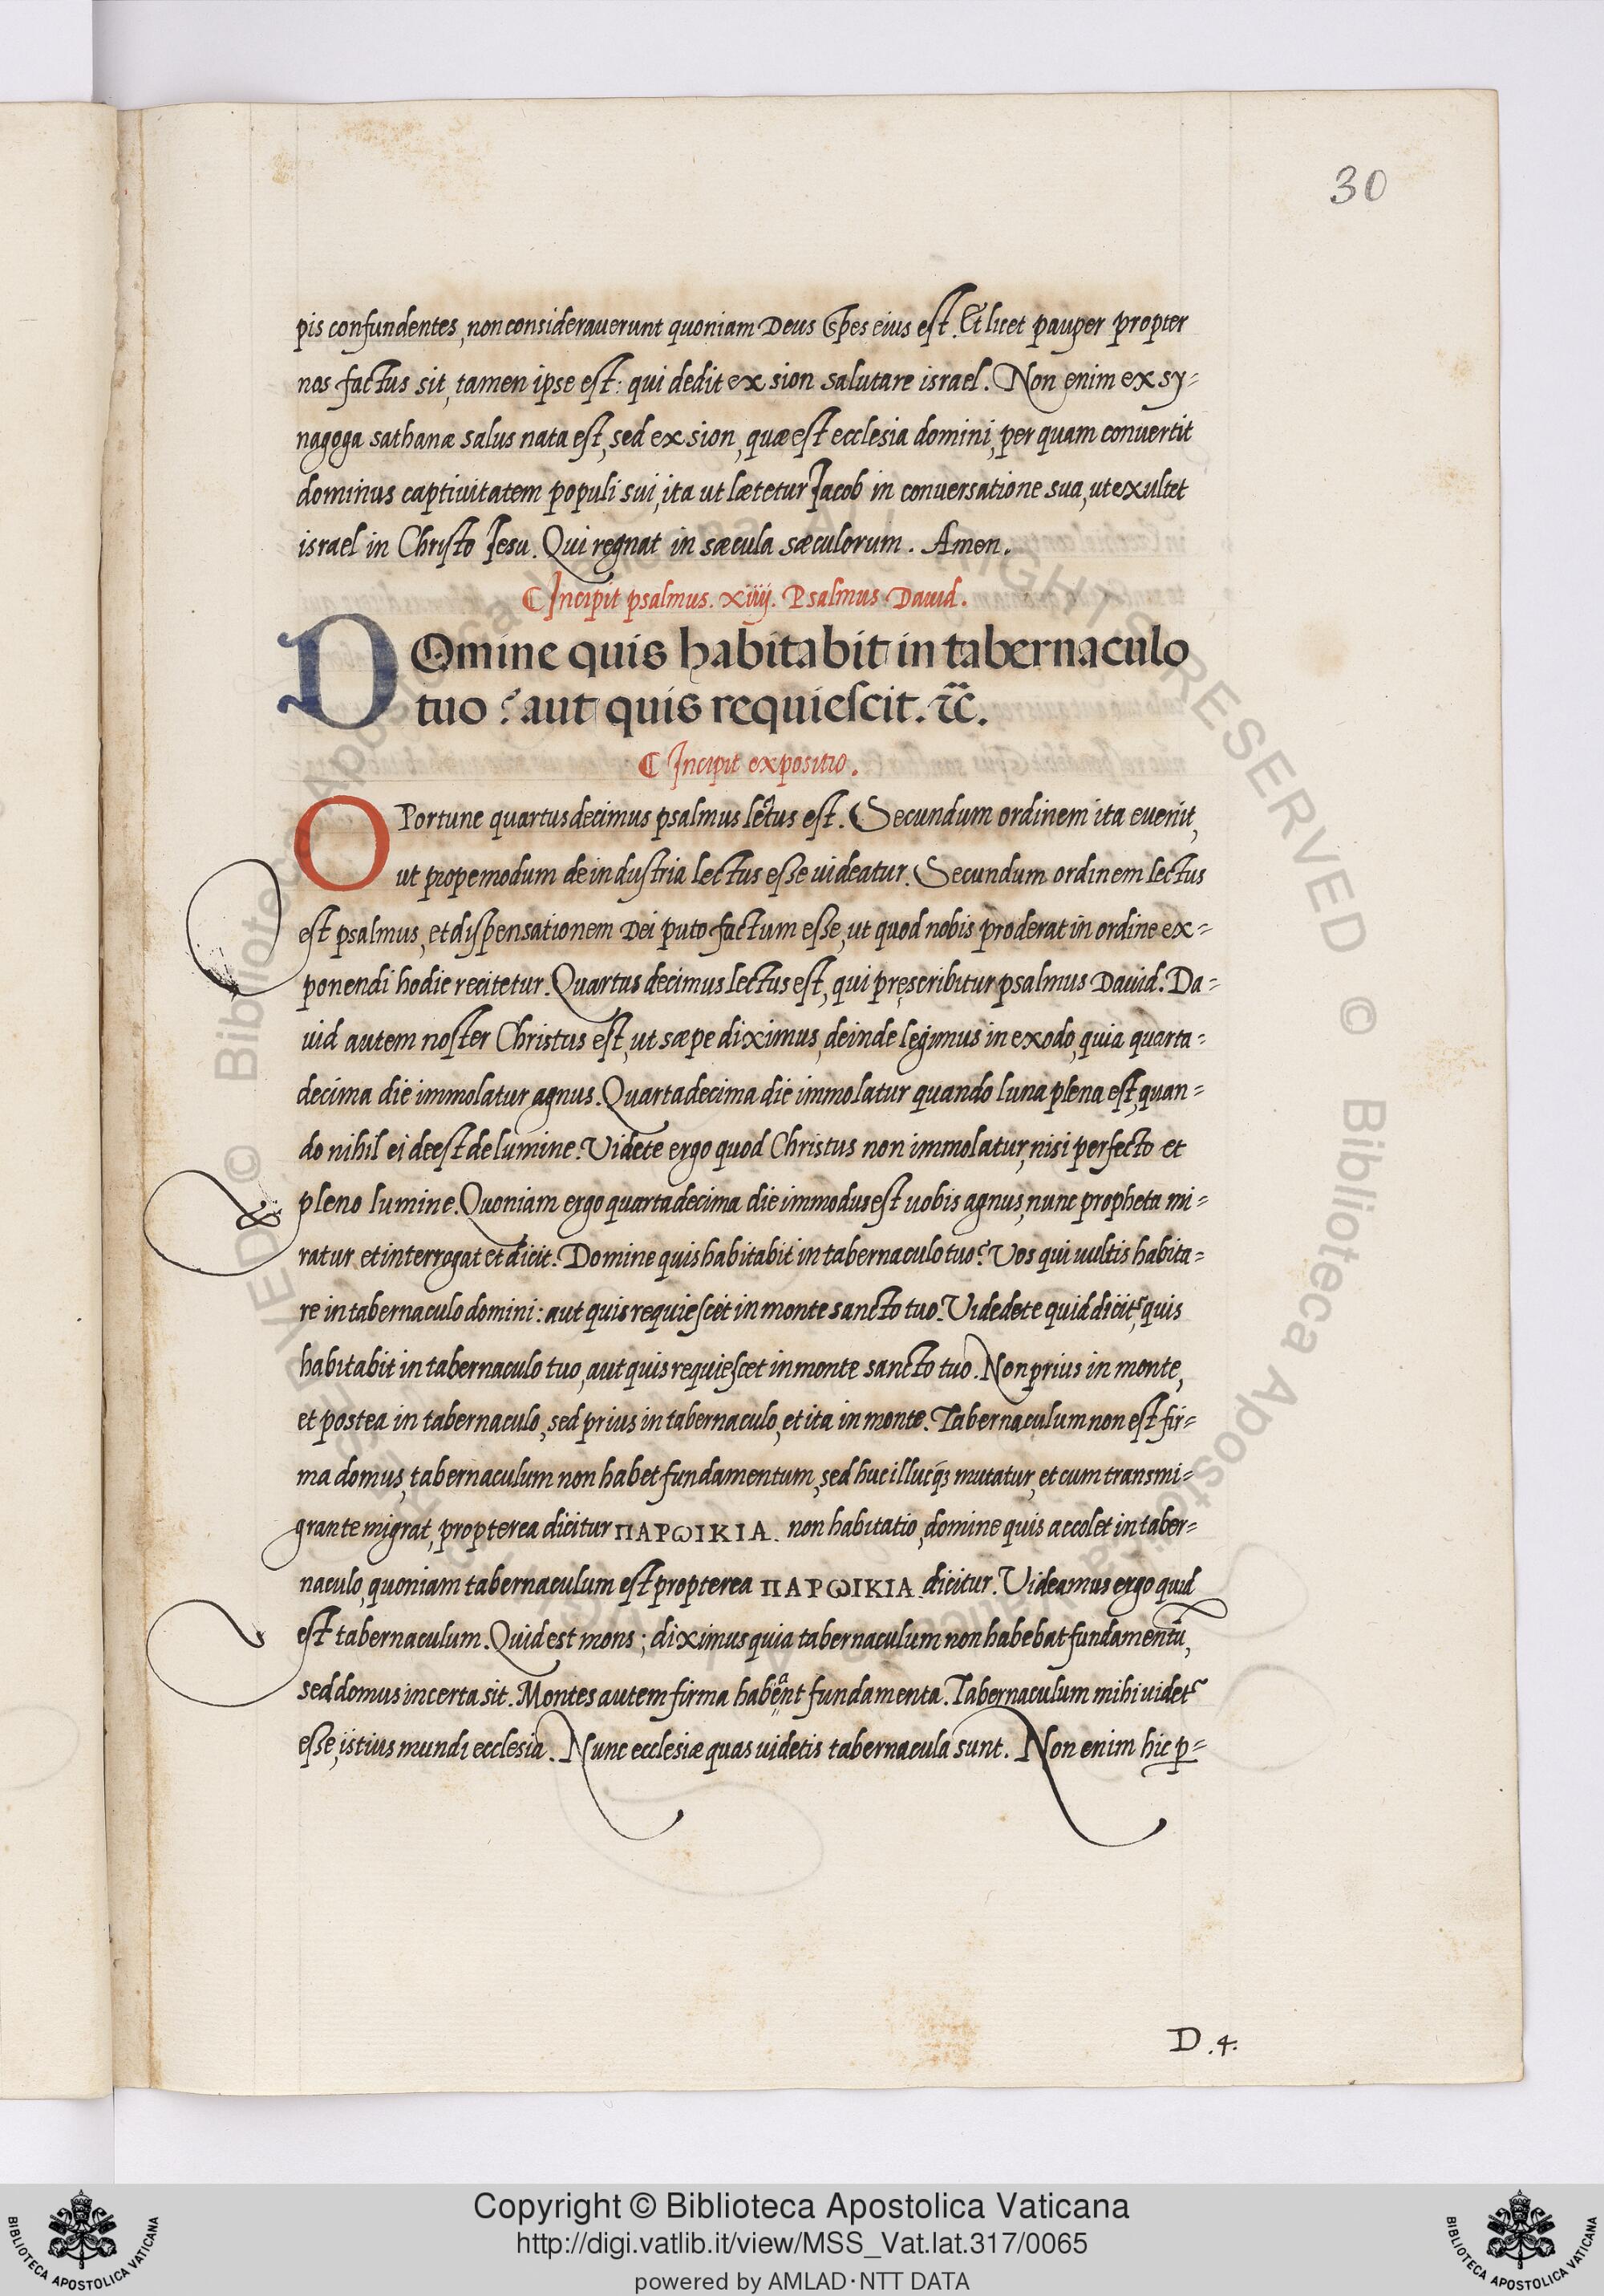 30
pis confundentes, non considerauerunt quoniam Deus spes eius est. Et licet pauper propter
nos factus sit, tamen ipse est: qui dedit ex sion salutare israel. Non enim ex sy=
nagoga sathanæ salus nata est, sed ex sion, quæ est ecclesia domini, per quam conuertit
dominus captiuitatem populi sui, ita ut lætetur Jacob in conuersatione sua, ut exultet
israel in Christo Jesu. Qui regnat in sæcula sæculorum. Amen.
Incipit psalmus. xiiij. Psalmus Dauid.
DOmine quis habitabit in tabernaculo
tuo? aut quis requiescit. &c.
Incipit expositio.
OPortune quartusdecimus psalmus lectus est. Secundum ordinem ita euenit,
ut propemodum de industria lectus esse uideatur. Secundum ordinem lectus
est psalmus, et dispensationem Dei puto factum esse, ut quod nobis proderat in ordine ex=
ponendi hodie recitetur. Quartus decimus lectus est, qui pręscribitur psalmus Dauid. Da=
uid autem noster Christus est, ut sæpe diximus, deinde legimus in exodo, quia quarta=
decima die immolatur agnus. Quartadecima die immolatur quando luna plena est, quan=
do nihil ei deest de lumine. Videte ergo quod Christus non immolatur, nisi perfecto et
pleno lumine. Quoniam ergo quartadecima die immodus est uobis agnus, nunc propheta mi=
ratur et interrogat et dicit. Domine quis habitabit in tabernaculo tuo? Vos qui uultis habita=
re in tabernaculo domini: aut quis requiescet in monte sancto tuo. Videdete quid dicit, quis
habitabit in tabernaculo tuo, aut quis requiescet in monte sancto tuo. Non prius in monte,
et postea in tabernaculo, sed prius in tabernaculo, et ita in monte. Tabernaculum non est fir=
ma domus, tabernaculum non habet fundamentum, sed huc illucq; mutatur, et cum transmi=
grante migrat, propterea dicitur ΠΑΡωΙΚΙΑ. non habitatio, domine quis accolet in taber=
naculo, quoniam tabernaculum est propterea ΠΑΡωΙΚΙΑ dicitur. Videamus ergo quid
est tabernaculum. Quid est mons; diximus quia tabernaculum non habebat fundamentū,
sed domus incerta sit. Montes autem firma habent fundamenta. Tabernaculum mihi uidet᷑
esse, istius mundi ecclesia. Nunc ecclesiæ quas uidetis tabernacula sunt. Non enim hic p=
D.4.
Copyright © Biblioteca Apostolica Vaticana
http://digi.vatlib.it/view/MSS_Vat.lat.317/0065
powered by AMLAD·NTT DATA
BIBLIOTECA APOSTOLICA VATICANA
BIBLIOTECA APOSTOLICA VATICANA